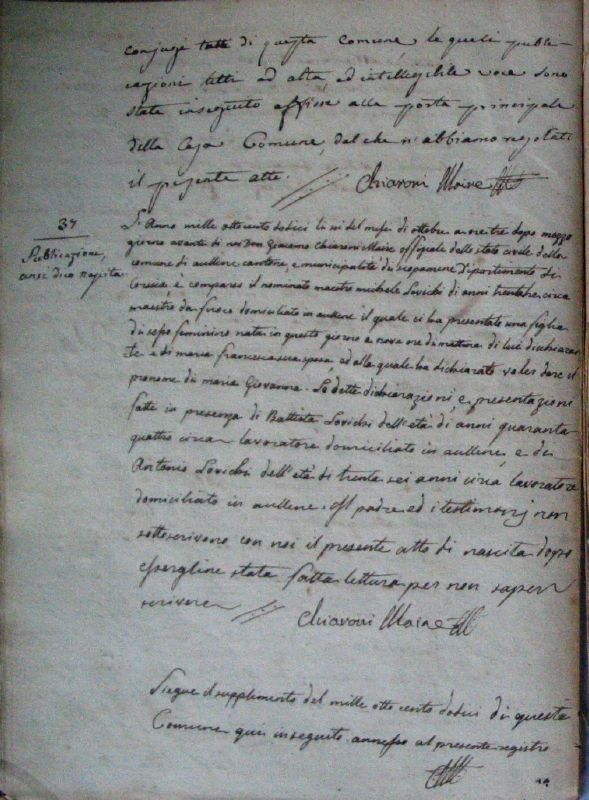 conjugi tutti di questa comune le quali public-
cazioni lette ad alta, ed intelligibile voce sono
state inseguito affisse alla porta principale
della Casa Comune, dal che n'abbiamo rogato
il presente atto. Chiaroni Maire
37
Publicazione,
anzi dico nascita
L'Anno mille ottocento dodici li sei del mese di ottobre a ore tre dopo mezzo
giorno avanti di noi Don Giacomo Chiaroni Maire offiziale dello stato civile della
comune di aullene cantone, e municipalità di scopamene Dipartimento di
Corsica, è comparso il nominato maestro michele Lovichi di anni trentatre circa
maestro da fuoco domiciliato in aullene il quale ci ha presentato una figlia
di sesso feminino nata in questo giorno a nova ore da mattina di lui dichiaran-
te e di maria francesca sua sposa, ed alla quale ha dichiarato voler dare il
pronome di maria Giovanna. Le dette dichiarazioni, e presentazioni
fatte in presenza di Battista Lovichi dell'età di anni quaranta
quattro circa lavoratore domiciliato in aullene, e di
Antonio Lovichi dell'età di trenta sei anni circa lavoratore
domiciliato in aullene. Il padre ed i testimonj non
sottoscrivono con noi il presente atto di nascita dopo
essergline stata fatta lettura per non saper
scrivere Chiaroni Maire
Siegue il supplimento del mille otto cento dodici di questa
Comune qui inseguito annesso al presente registro